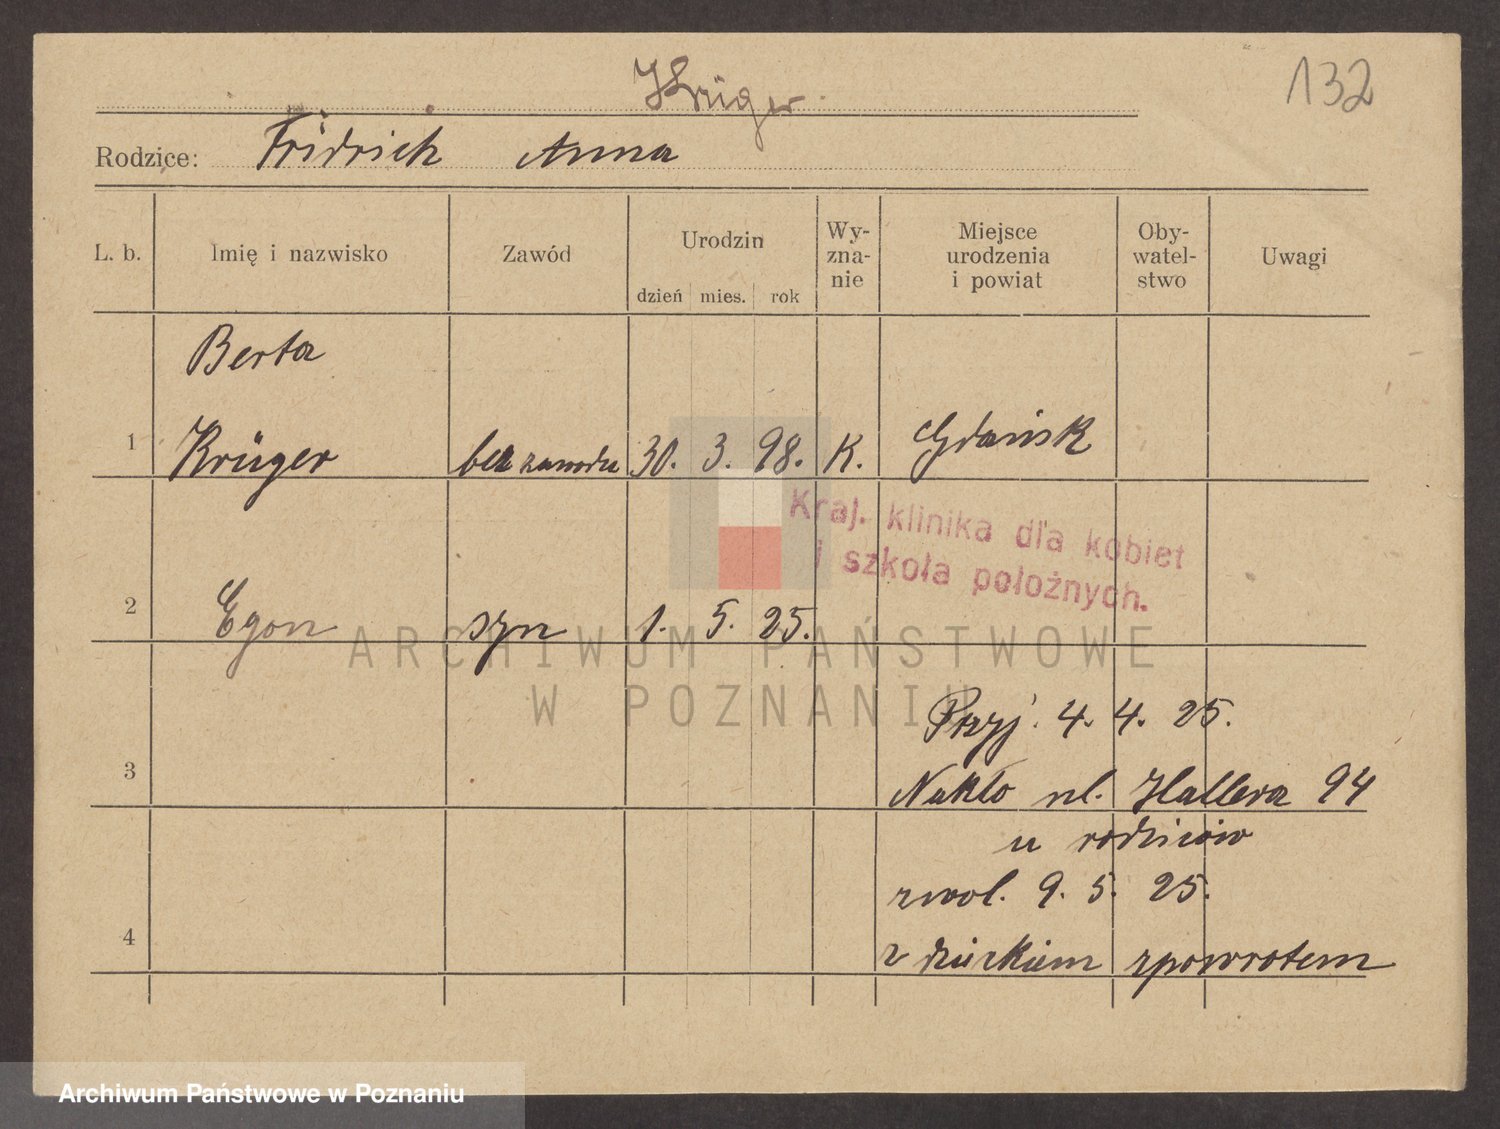 132
Krüger
Rodzice: Fridrich Anna
L. b. Imię i nazwisko Zawód Urodzin dzień mies. rok Wy-zna-nie Miejsce urodzenia i powiat Oby-watel-stwo Uwagi
Berta
1 Krüger bez zawodu 30. 3. 98. K. Gdańsk
Kraj. klinika dla kobiet
i szkoła położnych.
2 Egon syn 1. 5. 25.
ARCHIWUM PAŃSTWOWE
W POZNANIU
Przyj. 4. 4. 25.
3 Nakło ul. Hallera 94
u rodziców
zwol. 9. 5. 25.
4 z dzieckiem zpowrotem
Archiwum Państwowe w Poznaniu